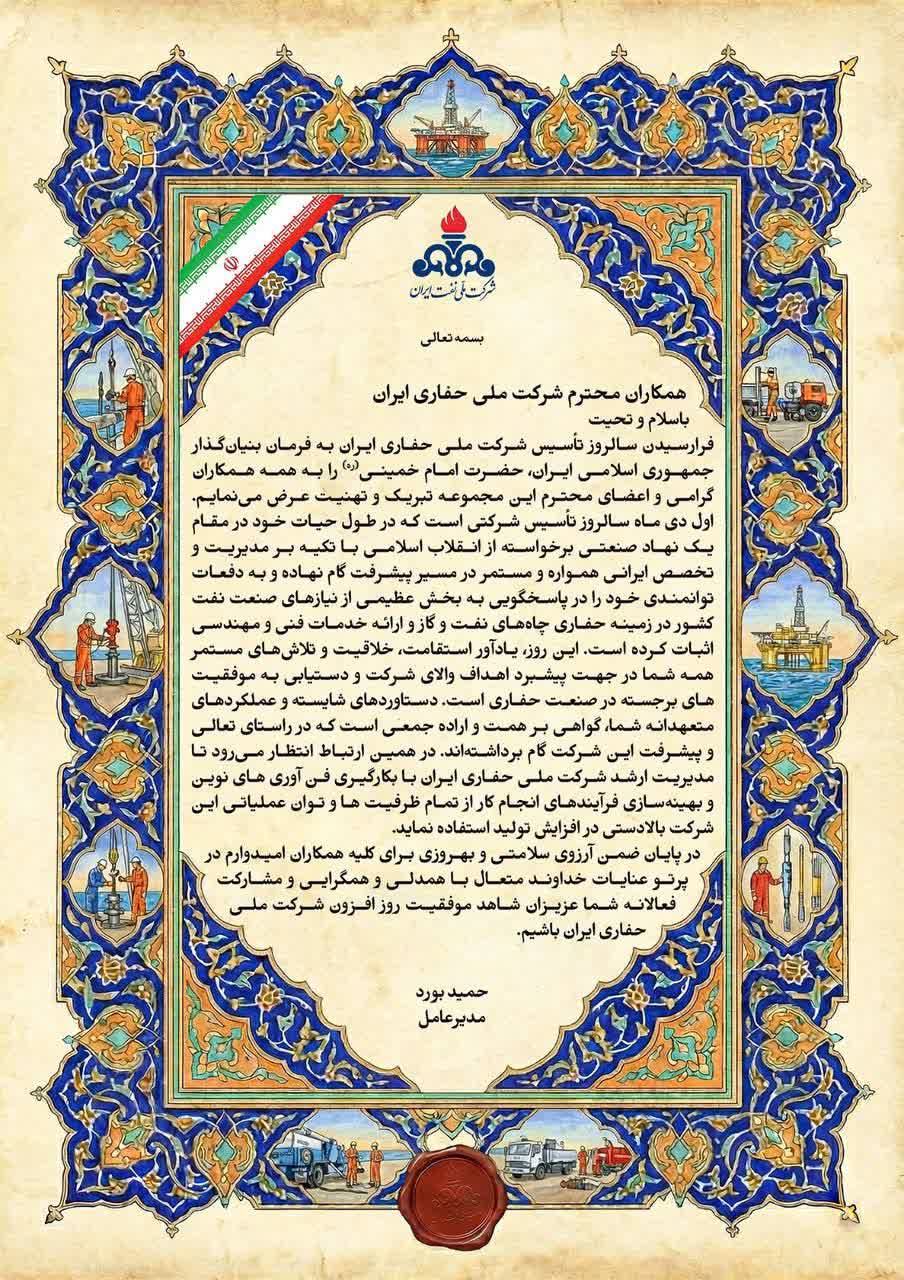 شرکت ملی نفت ایران
بسمه تعالی
همکاران محترم شرکت ملی حفاری ایران
باسلام و تحیت
فرارسیدن سالروز تأسیس شرکت ملی حفاری ایران به فرمان بنیان‌گذار
جمهوری اسلامی ایران، حضرت امام خمینی(ره) را به همه همکاران
گرامی و اعضای محترم این مجموعه تبریک و تهنیت عرض می‌نمایم.
اول دی ماه سالروز تأسیس شرکتی است که در طول حیات خود در مقام
یک نهاد صنعتی برخواسته از انقلاب اسلامی با تکیه بر مدیریت و
تخصص ایرانی همواره و مستمر در مسیر پیشرفت گام نهاده و به دفعات
توانمندی خود را در پاسخگویی به بخش عظیمی از نیازهای صنعت نفت
کشور در زمینه حفاری چاه‌های نفت و گاز و ارائه خدمات فنی و مهندسی
اثبات کرده است. این روز، یادآور استقامت، خلاقیت و تلاش‌های مستمر
همه شما در جهت پیشبرد اهداف والای شرکت و دستیابی به موفقیت
های برجسته در صنعت حفاری است. دستاوردهای شایسته و عملکردهای
متعهدانه شما، گواهی بر همت و اراده جمعی است که در راستای تعالی
و پیشرفت این شرکت گام برداشته‌اند. در همین ارتباط انتظار می‌رود تا
مدیریت ارشد شرکت ملی حفاری ایران با بکارگیری فن آوری های نوین
و بهینه‌سازی فرآیندهای انجام کار از تمام ظرفیت ها و توان عملیاتی این
شرکت بالادستی در افزایش تولید استفاده نماید.
در پایان ضمن آرزوی سلامتی و بهروزی برای کلیه همکاران امیدوارم در
پرتو عنایات خداوند متعال با همدلی و همگرایی و مشارکت
فعالانه شما عزیزان شاهد موفقیت روز افزون شرکت ملی
حفاری ایران باشیم.
حمید بورد
مدیرعامل